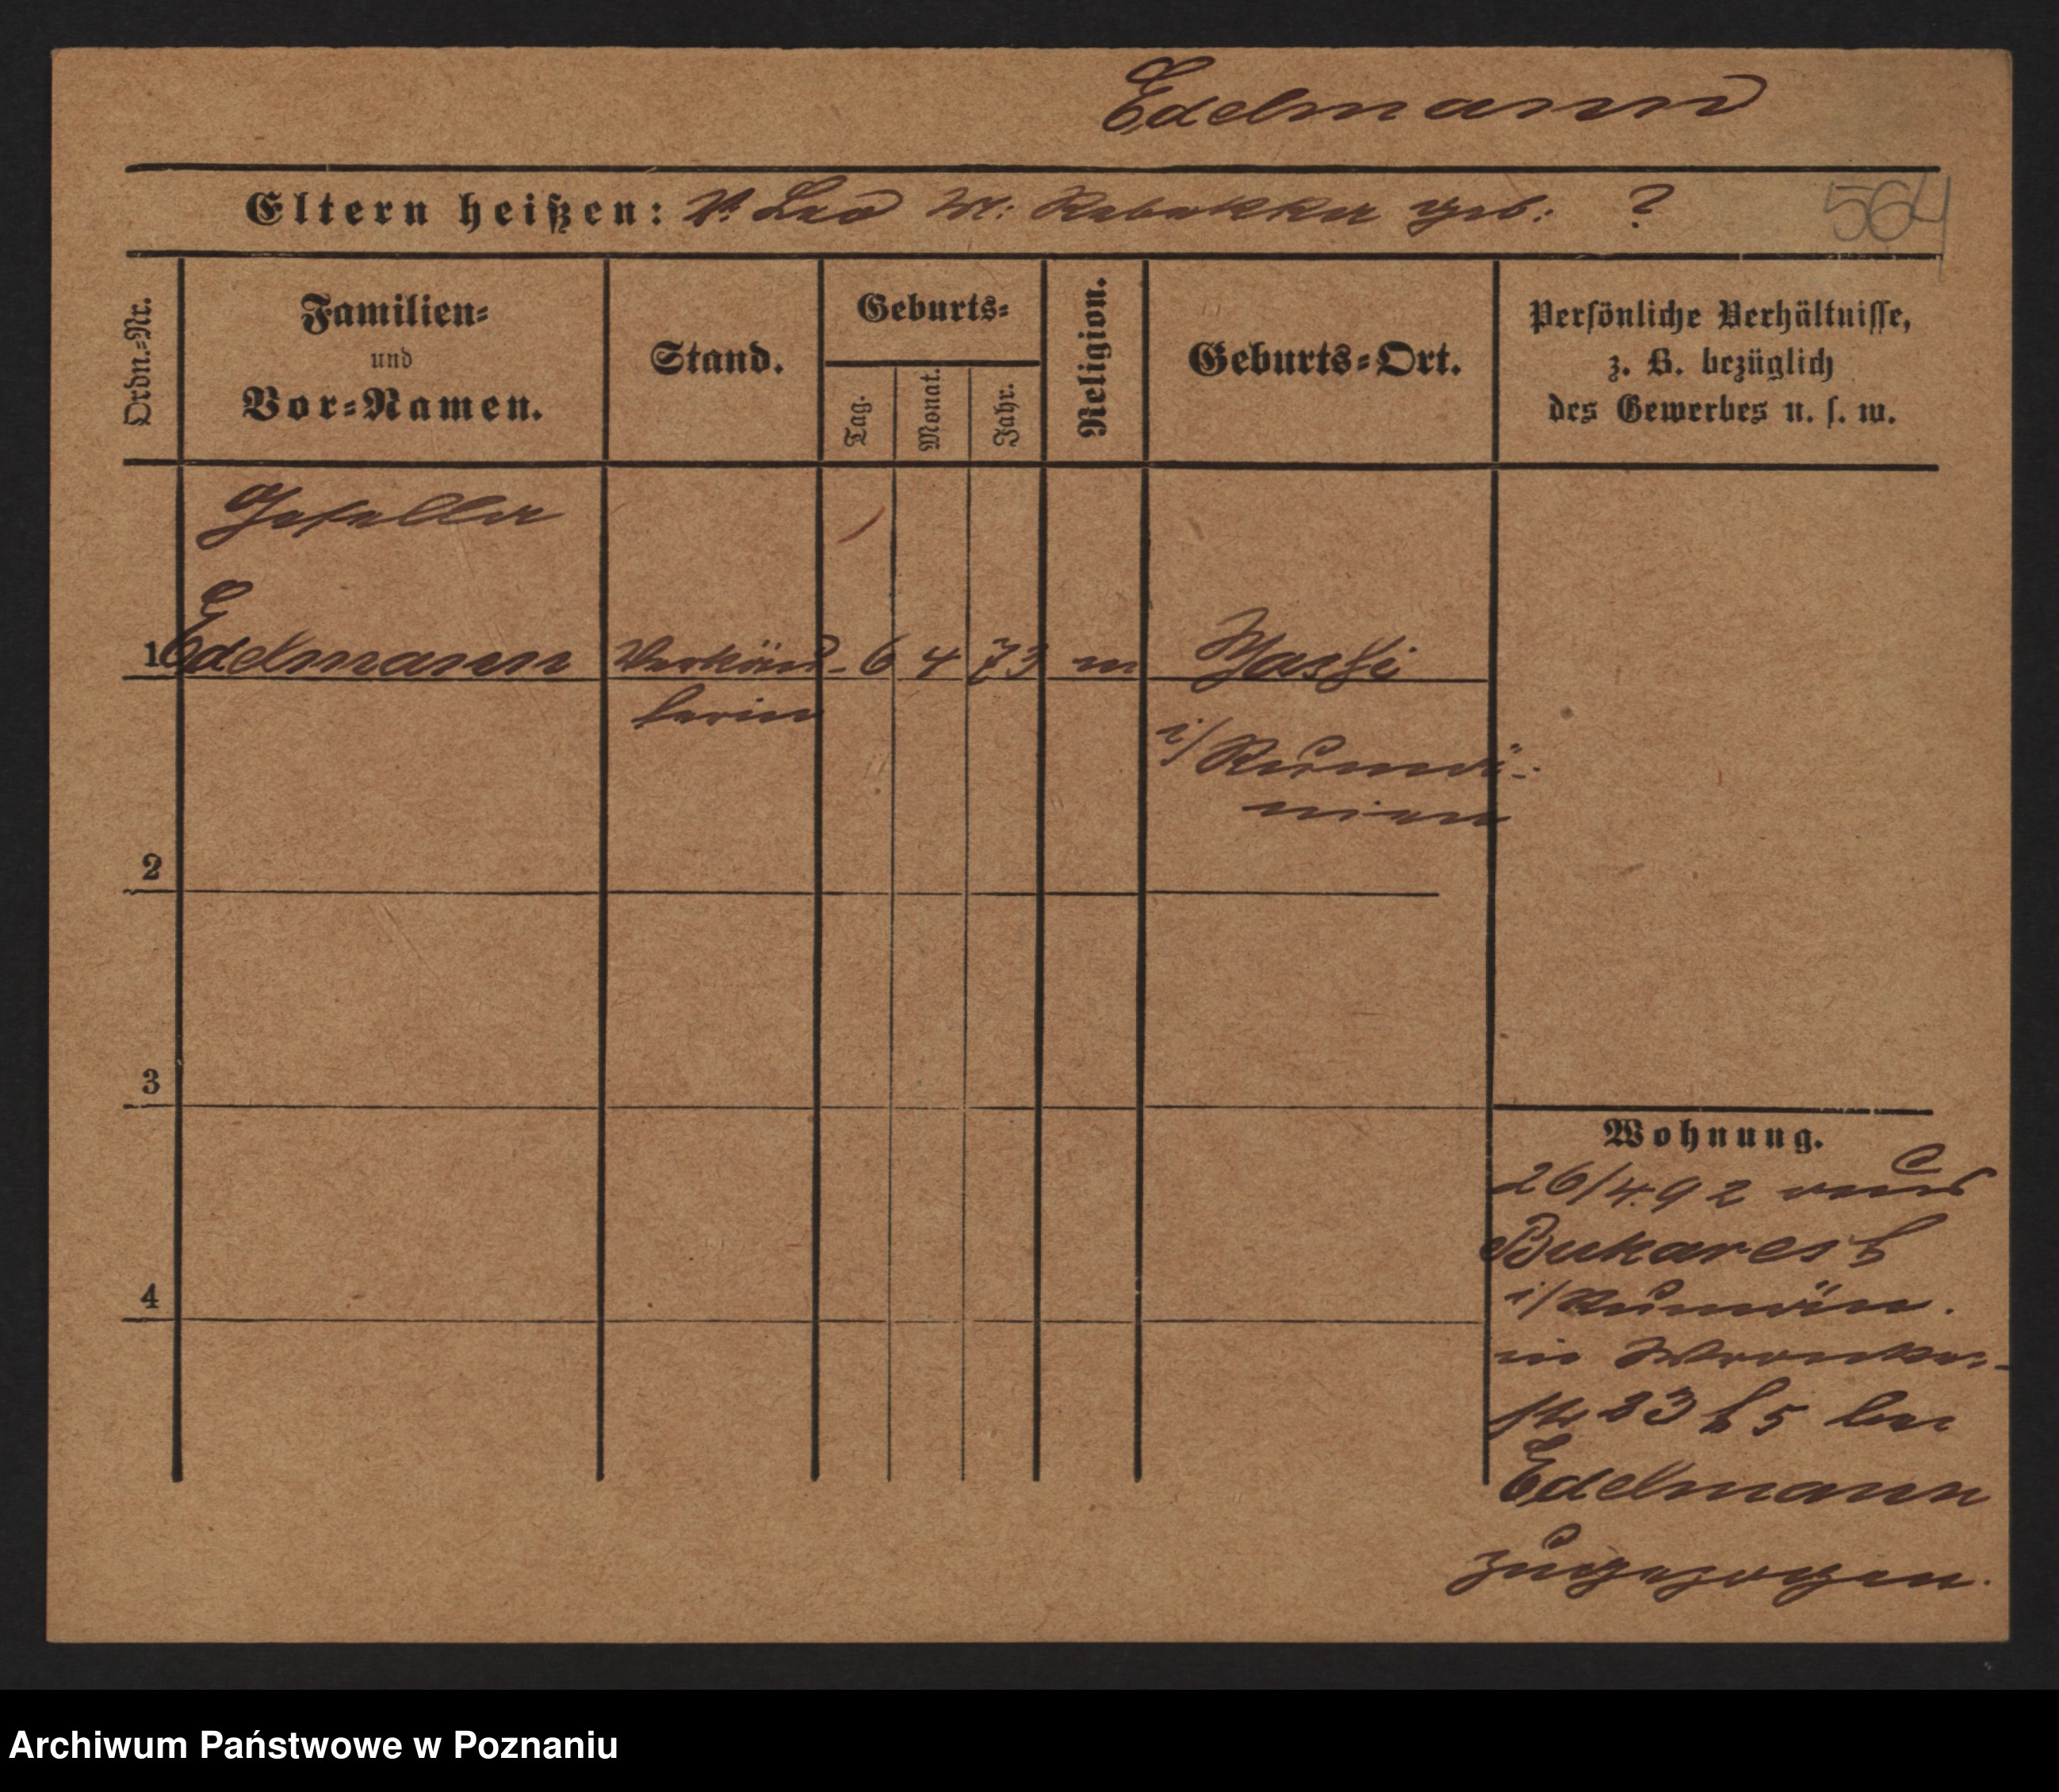 Edelmann
Eltern heißen: V. Leo M: Rebekka geb: ?
564
Ordn.=Nr.
Familien=
und
Vor=Namen.
Stand.
Geburts=
Tag.
Monat.
Jahr.
Religion.
Geburts=Ort.
Persönliche Verhältnisse,
z. B. bezüglich
des Gewerbes u. s. w.
1 Edelmann Verkäu- 6 4 73 m Jassi
ferin
i/ Rumä-
nien
2
3
4
Wohnung.
26/4.92 von
Bukarest
i/Rumän.
in Wronker-
str 23 b 5 bei
Edelmann
zugezogen.
Archiwum Państwowe w Poznaniu